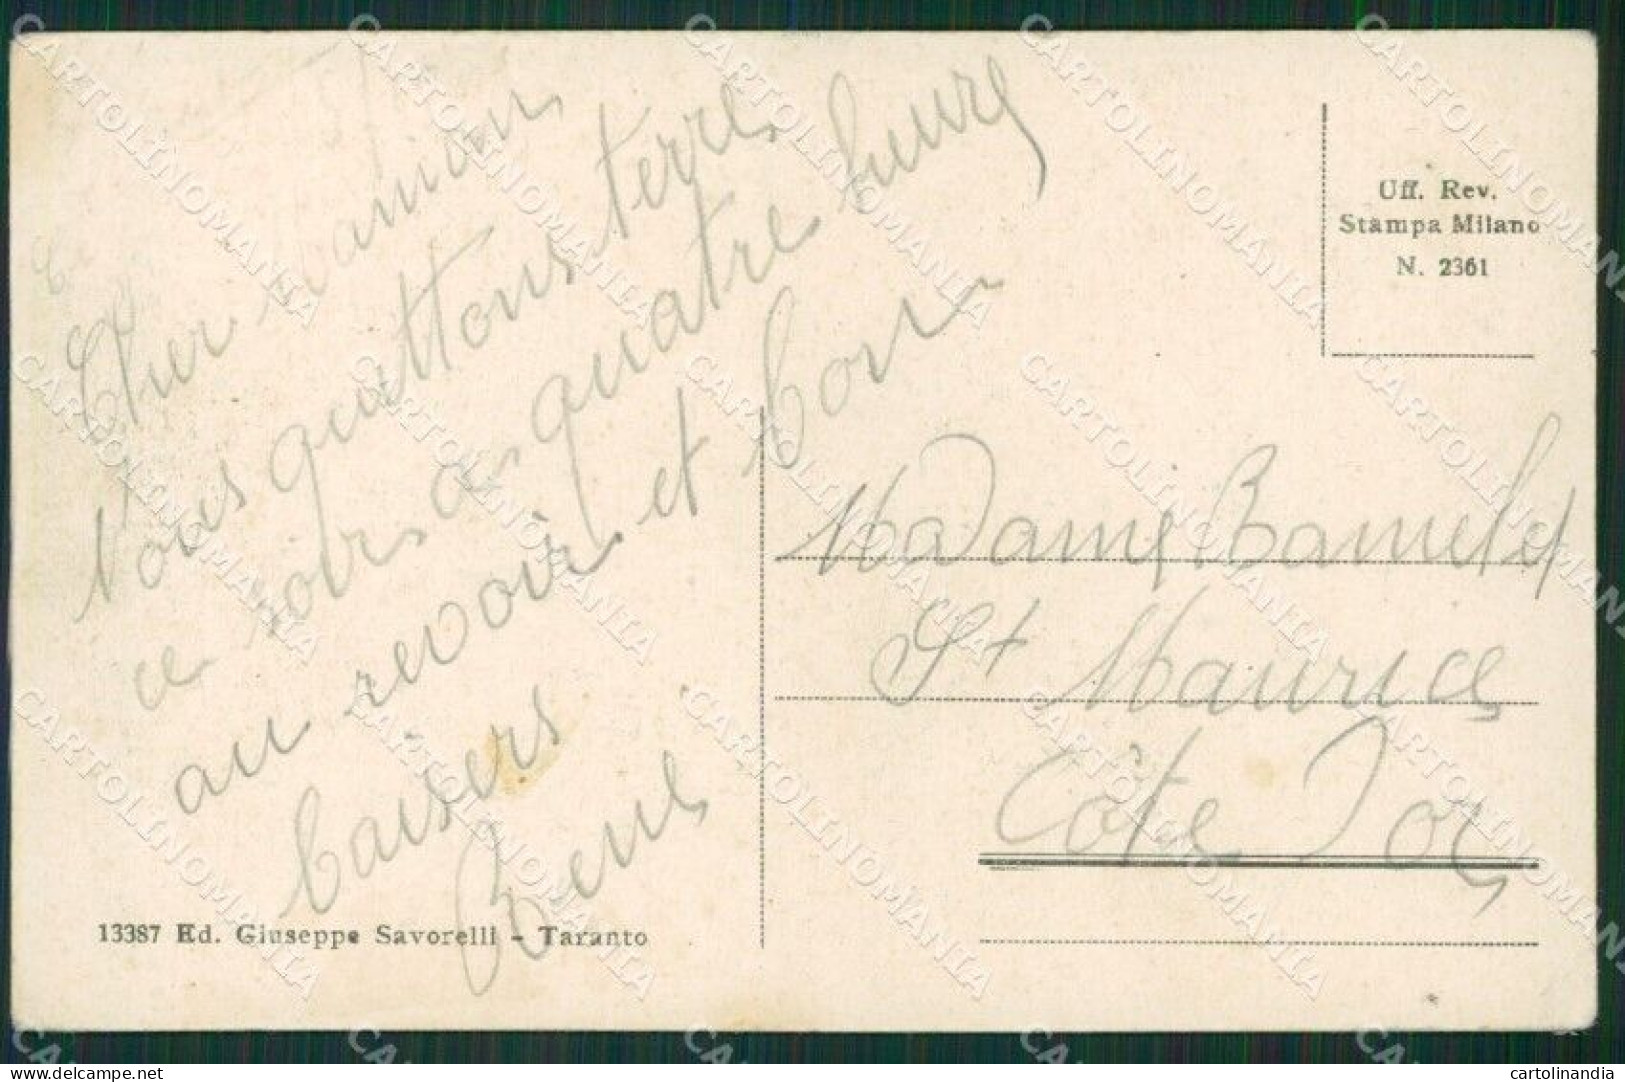 Cher maman
Nous quittons terre
ce soir a quatre heure
au revoir et bon
baisers
René
13387 Ed. Giuseppe Savorelli - Taranto
Uff. Rev.
Stampa Milano
N. 2361
Madame
St Maurice
Côte Dor
CARTOLINOMANIA
cartolinandia